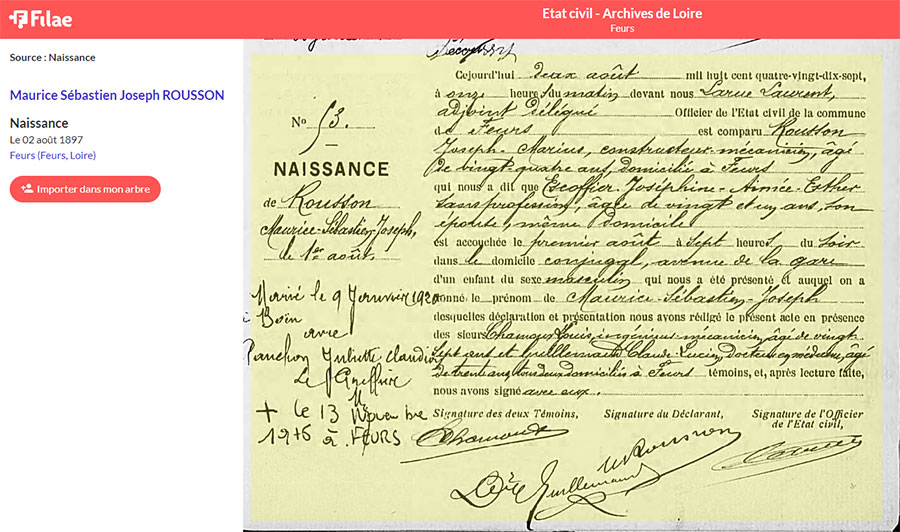 Filae
Etat civil - Archives de Loire
Feurs
Source : Naissance
Maurice Sébastien Joseph ROUSSON
Naissance
Le 02 août 1897
Feurs (Feurs, Loire)
Importer dans mon arbre
No 53.
NAISSANCE
de Rousson
Maurice-Sébastien-Joseph,
le 1er août.
Marié le 9 Janvier 1920
à Boën
avec
Juliette Claudine
Le Greffier
+ le 13 Novembre
à FEURS
Cejourd'hui deux août mil huit cent quatre-vingt-dix-sept,
à onze heures du matin devant nous Larue Laurent,
adjoint délégué Officier de l'Etat civil de la commune
de Feurs est comparu Rousson
Joseph-Marius, constructeur-mécanicien, âgé
de vingt-quatre ans, domicilié à Feurs
qui nous a dit que Escoffier Joséphine-Aimée-Esther
sans profession, âgée de vingt et un ans, son
épouse, même domicile
est accouchée le premier août à sept heures du soir
dans le domicile conjugal, avenue de la gare
d'un enfant du sexe masculin qui nous a été présenté et auquel on a
donné le prénom de Maurice-Sébastien-Joseph
desquelles déclaration et présentation nous avons rédigé le présent acte en présence
des sieurs Louis, ingénieur-mécanicien, âgé de vingt
sept ans et Guillemaud Claude-Lucien, docteur en médecine, âgé
de trente ans, tous deux domiciliés à Feurs témoins, et, après lecture faite,
nous avons signé avec eux.
Signature des deux Témoins, Signature du Déclarant, Signature de l'Officier
de l'Etat civil,
Rousson
Guillemaud